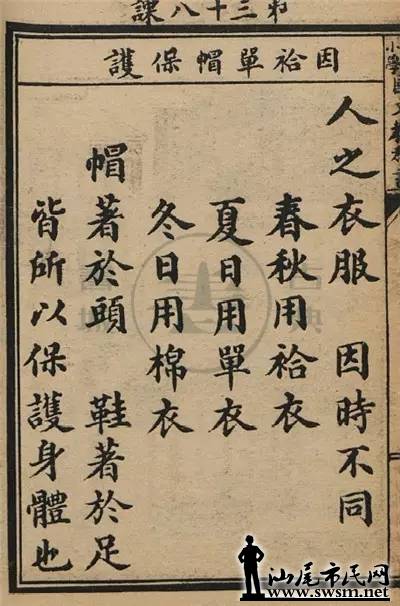 第三十八課
因袷單帽保護
人之衣服 因時不同
春秋用袷衣
夏日用單衣
冬日用棉衣
帽著於頭 鞋著於足
皆所以保護身體也
汕尾市民网
www.swsm.net